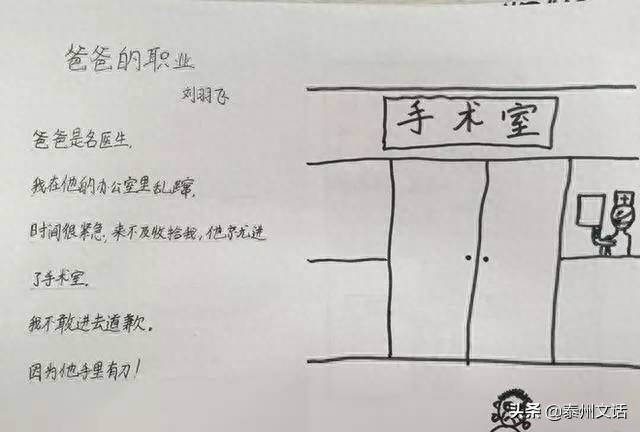 爸爸的职业
刘羽飞
爸爸是名医生,
我在他的办公室里乱蹿,
时间很紧急,来不及收拾我,他就进
了手术室。
我不敢进去道歉。
因为他手里有刀!
手术室
头条 @泰州文话